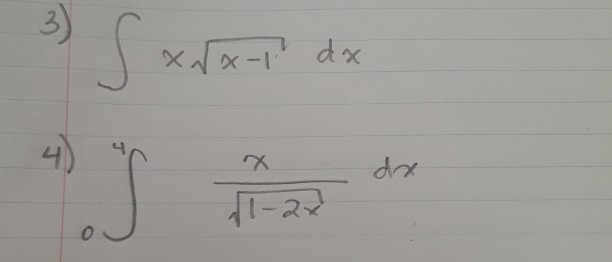 3) ∫ x√(x-1) dx
4) ∫₀⁴ x/√(1-2x) dx